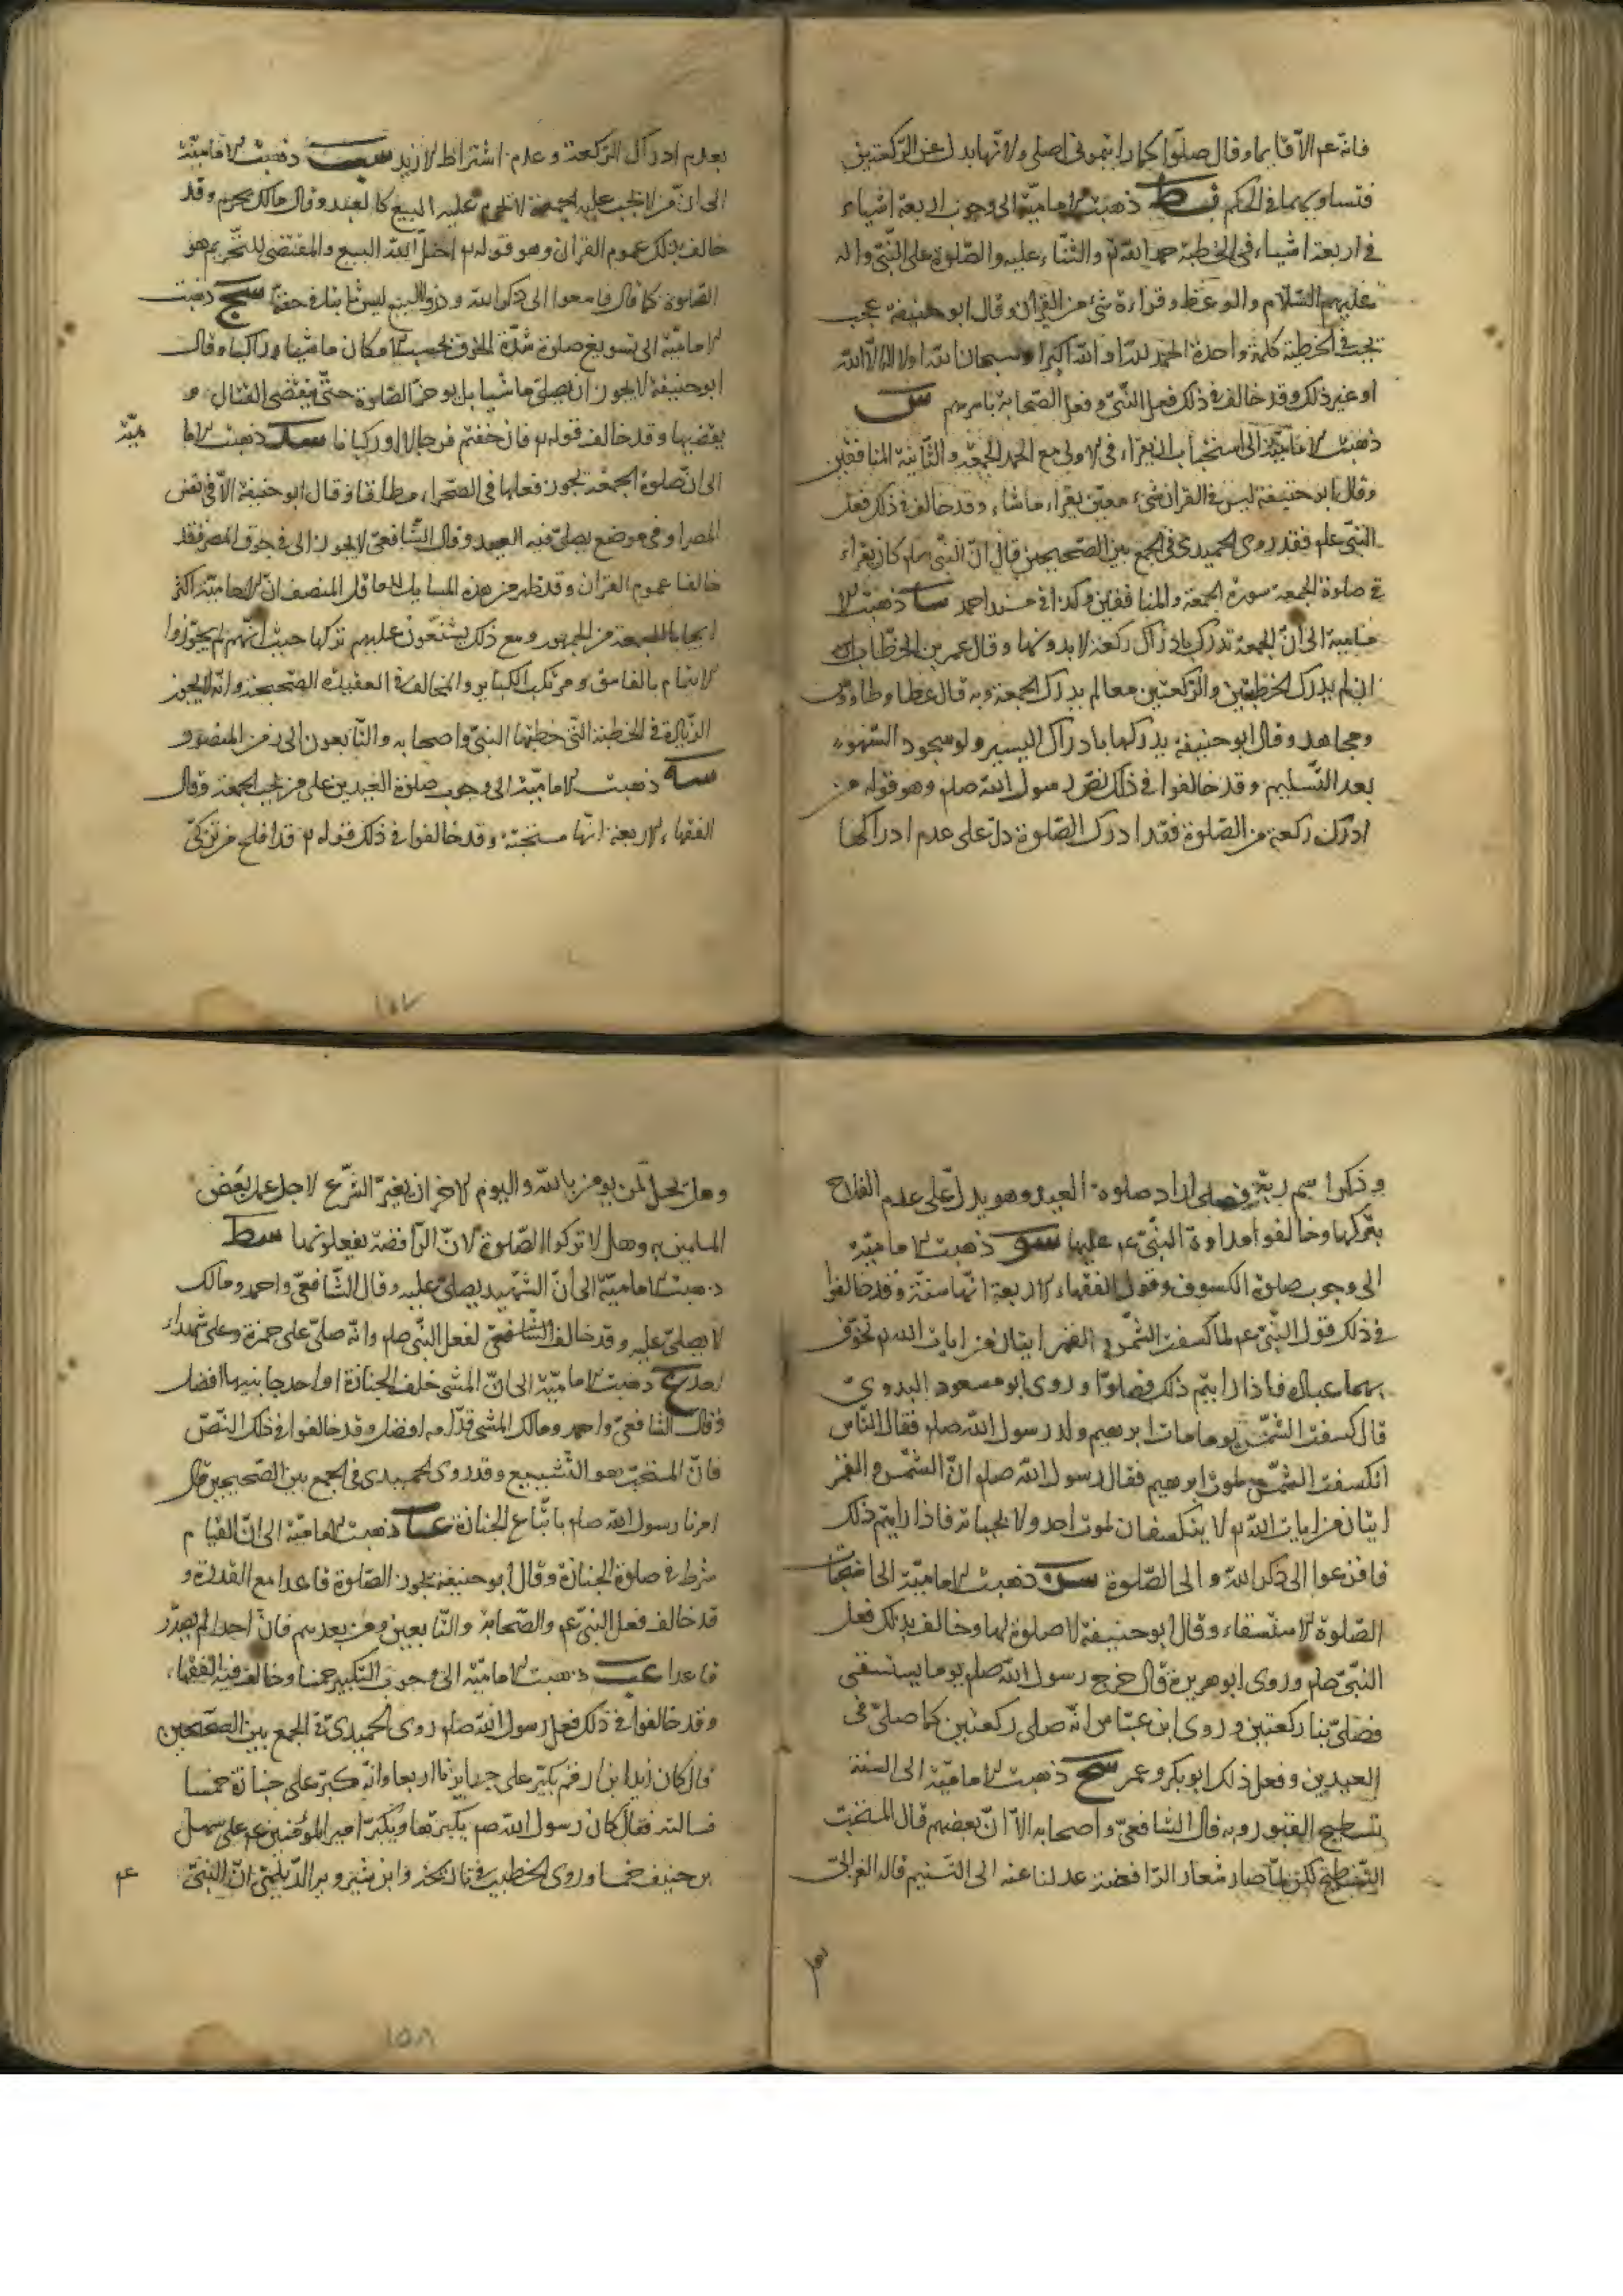 فانه عم الا قايما وقال صلوا كما رايتموني اصلي ولانها بدل عن الركعتين
فتساويهما في الحكم نط ذهبت الامامية الى وجوب اربعة اشياء
في اربعة اشياء في الخطبة حمد الله تع والثناء عليه والصلوة على النبي واله
عليهم السلام والوعظ وقراءة شيء من القران وقال ابو حنيفة
يجب في الخطبة كلمة واحدة الحمد لله او الله اكبر او سبحان الله او لا اله الا الله
او غير ذلك وقد خالف في ذلك فعل النبي وفعل الصحابة باسرهم س
ذهبت الامامية الى استحباب ان يقراء في الاولى مع الحمد الجمعة والثانية المنافقين
وقال ابو حنيفة ليس في القران شيء معين يقراء ما شاء وقد خالف في ذلك فعل
النبي عم فقد روى الحميدي في الجمع بين الصحيحين قال ان النبي صلم كان يقراء
في صلوة الجمعة سورة الجمعة والمنافقين وكذا في مسند احمد سا ذهبت الا
مامية الى ان الجمعة تدرك بادراك ركعة لا بدونها وقال عمر بن الخطاب
ان لم يدرك الخطبتين والركعتين معا لم يدرك الجمعة وبه قال عطا وطاوس
ومجاهد وقال ابو حنيفة يدركها بادراك اليسير ولو سجود السهو
بعد التسليم وقد خالفوا في ذلك نص رسول الله صلم وهو قوله من
ادرك ركعة من الصلوة فقد ادرك الصلوة دل على عدم ادراكها
بعدم ادراك الركعة وعدم اشتراط الازيد سب ذهبت الامامية
الى ان من لا يجب عليه الجمعة لا يحرم عليه البيع كالعبد وقال مالك يحرم وقد
خالف بذلك عموم القران وهو قوله تع احل الله البيع والمقتضي للتحريم هو
الصلوة كما قال فاسعوا الى ذكر الله وذروا البيع ليس ثابتا في حقه سج ذهبت
الامامية الى تسويغ صلوة شدة الخوف بحسب الامكان ماشيا وراكبا وقال
ابو حنيفة لا يجوز ان يصلي ماشيا بل يوخر الصلوة حتى ينقضي القتال و
يقضيها وقد خالف قوله تع فان خفتم فرجالا او ركبانا سد ذهبت الاما
مية
الى ان صلوة الجمعة يجوز فعلها في الصحراء مطلقا وقال ابو حنيفة الا في نفس
المصر او في موضع يصلى فيه العيد وقال الشافعي لا يجوز الا في جوف المصر فقد
خالفا عموم القران وقد ظهر من هذه المسايل للعاقل المنصف ان الامامية اكثر
ايجابا للجمعة من الجمهور ومع ذلك يشنعون عليهم تركها حيث انهم لم يجوزوا
الايتمام بالفاسق ومرتكب الكباير والمخالف في العقيدة الصحيحة وانه لا يجوز
الزيادة في الخطبة التي خطبها النبي واصحابه والتابعون الى زمن المنصور
سه ذهبت الامامية الى وجوب صلوة العيدين على من يجب الجمعة وقال
الفقهاء الاربعة انها مستحبة وقد خالفوا في ذلك قوله تع قد افلح من تزكى
157
وذكر اسم ربه فصلى اراد صلوة العيد وهو يدل على عدم الفلاح
بتركها وخالفوا مداومة النبي عم عليها سو ذهبت الامامية
الى وجوب صلوة الكسوف وقول الفقهاء الاربعة انها سنة وقد خالفوا
في ذلك قول النبي عم لما كسفت الشمس و القمر ايتان من ايات الله تع تخوف
بهما عباده فاذا رايتم ذلك فصلوا وروى ابو مسعود البدوي
قال كسفت الشمس يوما مات ابرهيم ولد رسول الله صلم فقال الناس
انكسفت الشمس لموت ابرهيم فقال رسول الله صلم ان الشمس والقمر
ايتان من ايات الله تع لا ينكسفان لموت احد ولا لحياته فاذا رايتم ذلك
فافزعوا الى ذكر الله والى الصلوة سز ذهبت الامامية الى استحباب
الصلوة للاستسقاء وقال ابو حنيفة لا صلوة لها وخالف بذلك فعل
النبي صلم وروى ابو هريرة قال خرج رسول الله صلم يوما يستسقي
فصلى بنا ركعتين وروى ابن عباس انه صلى ركعتين كما صلى في
العيدين وفعل ذلك ابو بكر وعمر سح ذهبت الامامية الى السنة
تسطيح القبور وبه قال الشافعي واصحابه الا ان بعضهم قال المستحب
التسطيح لكن لما صار شعار الرافضة عدلنا عنه الى التسنيم قاله الغزالي
وهل يحل لمن يومن بالله واليوم الاخر ان يغير الشرع لاجل عمل بعض
المسلمين به وهل لا تركوا الصلوة لان الرافضة يفعلونها سط
ذهبت الامامية الى ان الشهيد يصلى عليه وقال الشافعي واحمد ومالك
لا يصلى عليه وقد خالف الشافعي لفعل النبي صلم وانه صلى على حمزة وعلى شهداء
احد ع ذهبت الامامية الى ان المشي خلف الجنازة او احد جانبيها افضل
وقال الشافعي واحمد ومالك المشي قدامه افضل وقد خالفوا في ذلك النص
فان المستحب هو التشييع وقد روى الحميدي في الجمع بين الصحيحين قال
امرنا رسول الله صلم باتباع الجنازة عا ذهبت الامامية الى ان القيام
شرط في صلوة الجنازة وقال ابو حنيفة يجوز الصلوة قاعدا مع القدرة و
قد خالف فعل النبي عم والصحابة والتابعين ومن بعدهم فان احدا لم يصل
قاعدا عب ذهبت الامامية الى وجوب التكبير خمسا وخالف فيه الفقهاء
وقد خالفوا في ذلك فعل رسول الله صلم روى الحميدي في الجمع بين الصحيحين
قال كان زيد ابن ارقم يكبر على جنايزنا اربعا وانه كبر على جنازة خمسا
فسالته فقال كان رسول الله صلم يكبرها وكبر امير المؤمنين عم على سهل
بن حنيف خمسا وروى الخطيب في تاريخه وابن شيرويه الديلمي ان النبي
عم
158